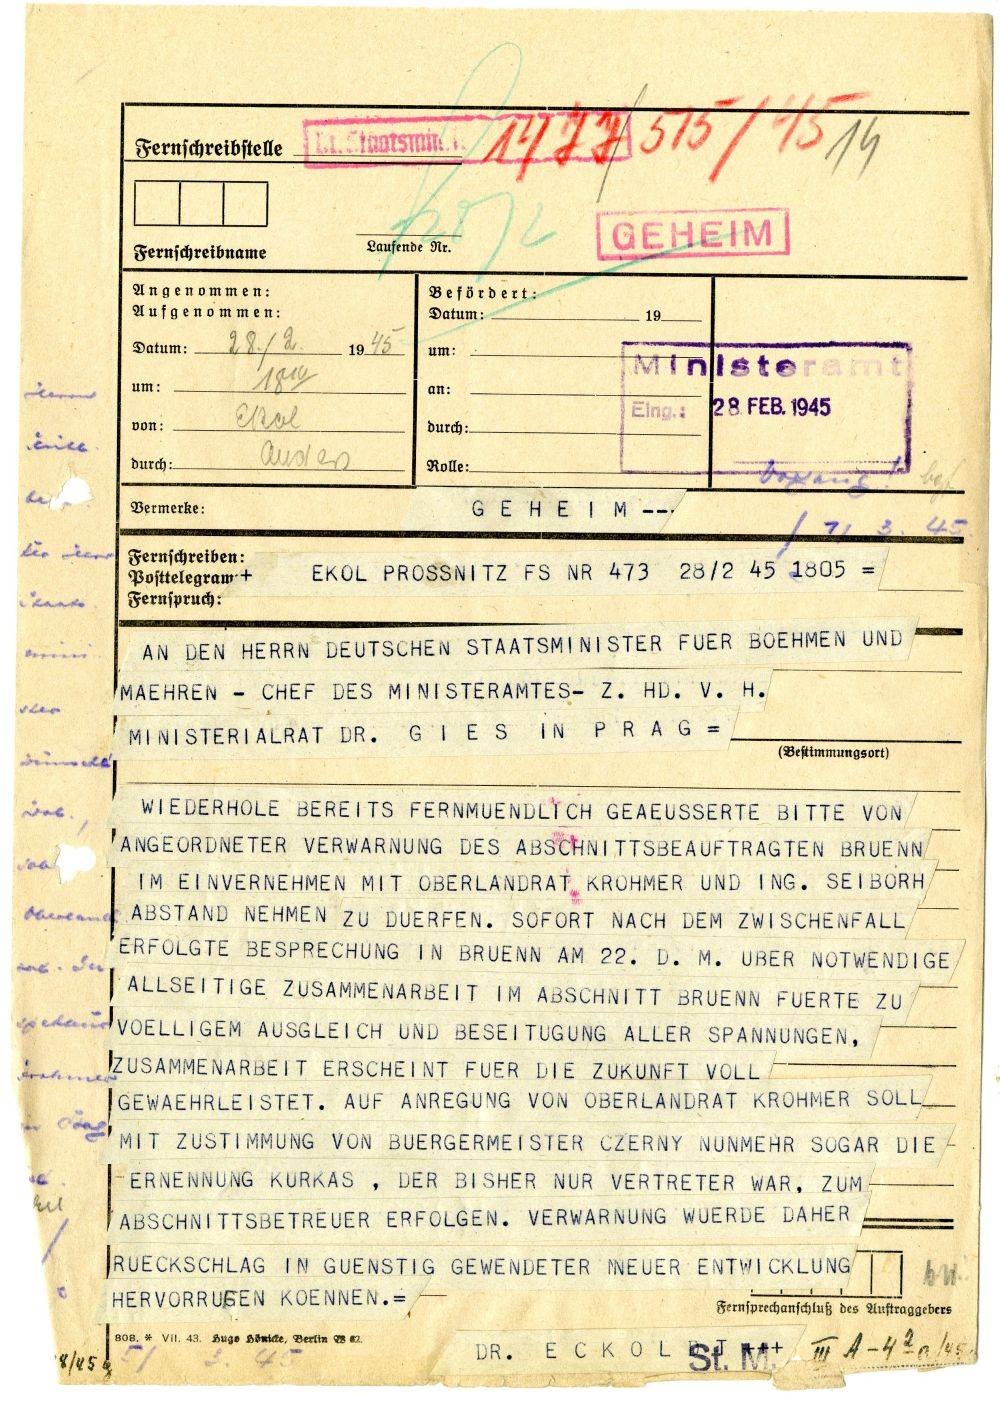 Fernschreibstelle
1477/515/45 14
Fernschreibname
Laufende Nr.
GEHEIM
Angenommen:
Aufgenommen:
Datum: 28./2. 19 45
um:
von: Ekol
durch:
Befördert:
Datum: 19
um:
an:
durch:
Rolle:
Ministeramt
Eing.: 28. FEB. 1945
Vermerke:
G E H E I M --
/ 7/ 3. 45
Fernschreiben:
Posttelegramm:
Fernspruch:
+ EKOL PROSSNITZ FS NR 473 28/2 45 1805 =
AN DEN HERRN DEUTSCHEN STAATSMINISTER FUER BOEHMEN UND
MAEHREN - CHEF DES MINISTERAMTES- Z. HD. V. H.
MINISTERIALRAT DR. G I E S I N P R A G =
(Bestimmungsort)
WIEDERHOLE BEREITS FERNMUENDLICH GEAEUSSERTE BITTE VON
ANGEORDNETER VERWARNUNG DES ABSCHNITTSBEAUFTRAGTEN BRUENN
IM EINVERNEHMEN MIT OBERLANDRAT KROHMER UND ING. SEIBORH
ABSTAND NEHMEN ZU DUERFEN. SOFORT NACH DEM ZWISCHENFALL
ERFOLGTE BESPRECHUNG IN BRUENN AM 22. D. M. UBER NOTWENDIGE
ALLSEITIGE ZUSAMMENARBEIT IM ABSCHNITT BRUENN FUERTE ZU
VOELLIGEM AUSGLEICH UND BESEITUGUNG ALLER SPANNUNGEN,
ZUSAMMENARBEIT ERSCHEINT FUER DIE ZUKUNFT VOLL
GEWAEHRLEISTET. AUF ANREGUNG VON OBERLANDRAT KROHMER SOLL
MIT ZUSTIMMUNG VON BUERGERMEISTER CZERNY NUNMEHR SOGAR DIE
ERNENNUNG KURKAS , DER BISHER NUR VERTRETER WAR, ZUM
ABSCHNITTSBETREUER ERFOLGEN. VERWARNUNG WUERDE DAHER
RUECKSCHLAG IN GUENSTIG GEWENDETER NEUER ENTWICKLUNG
HERVORRUFEN KOENNEN.=
Fernsprechanschluß des Auftraggebers
808. * VII. 43. Hugo Hönicke, Berlin
5/ 3. 45
DR. E C K O L D T +++
St. M. III A-4 2 a/45